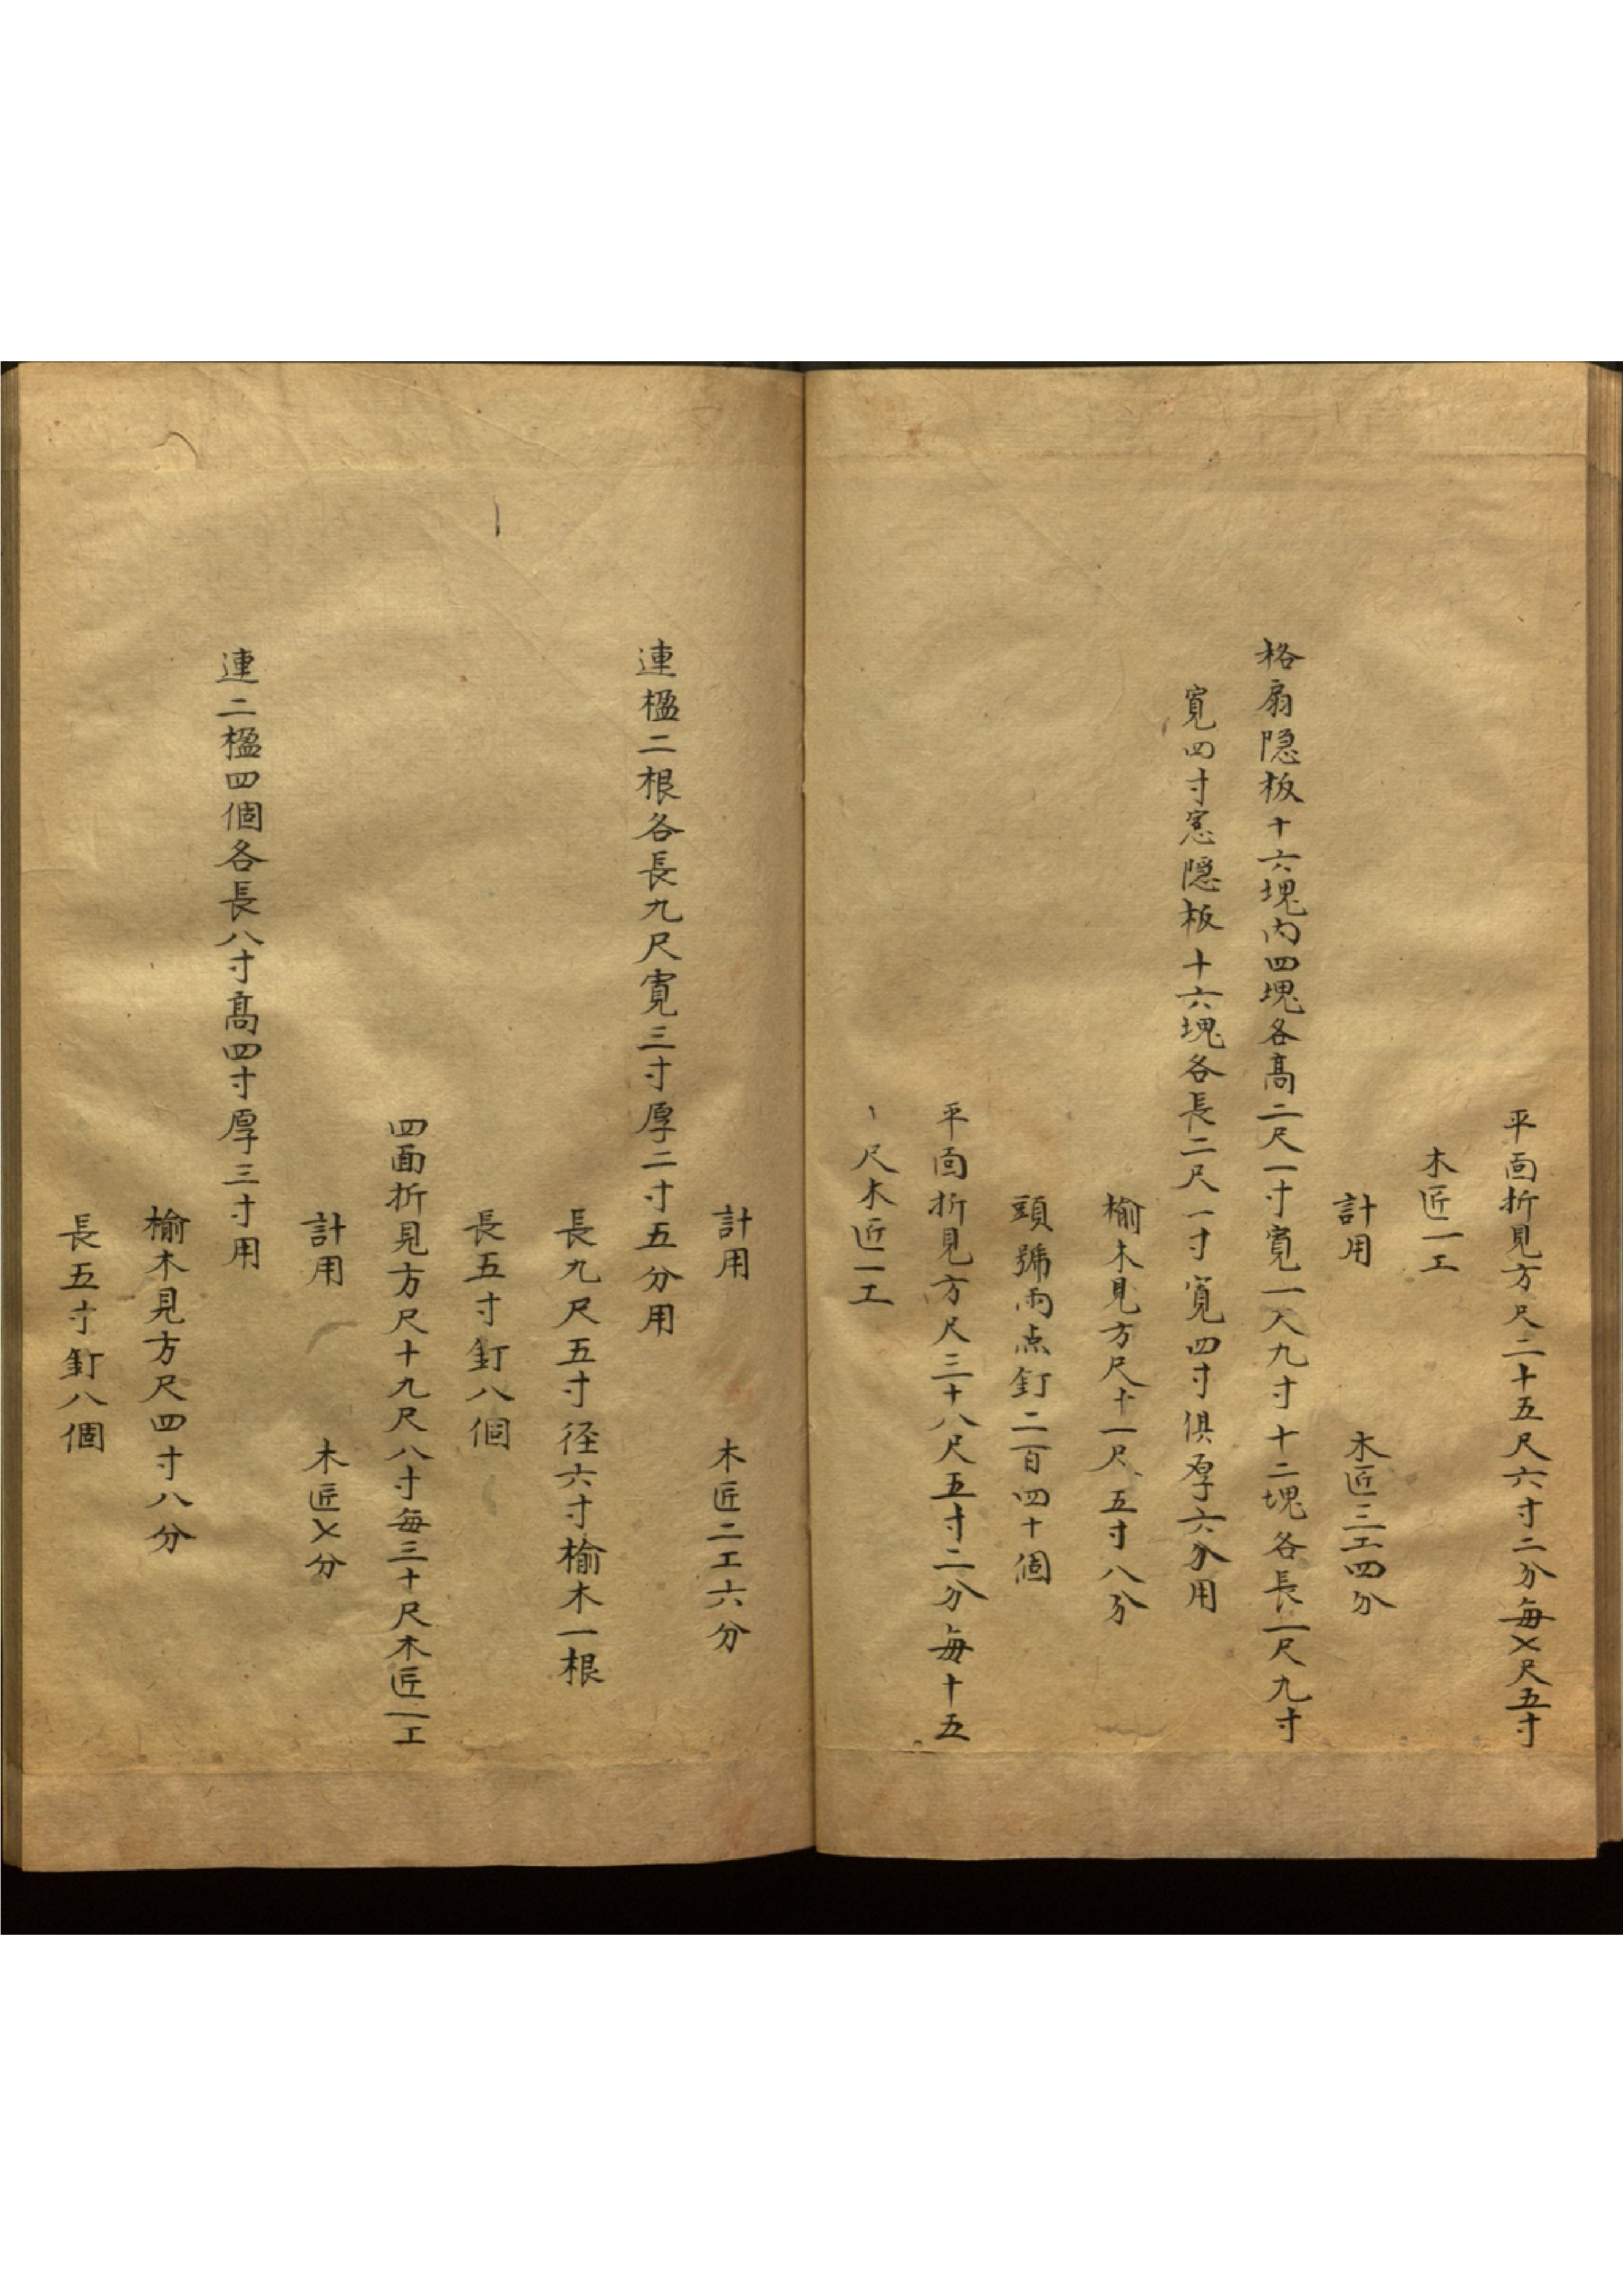 平面折見方尺二十五尺六寸二分每〤尺五寸
木匠一工
計用　木匠三工四分
格扇隐板十六塊内四塊各高二尺一寸寬一尺九寸十二塊各長一尺九寸
寬四寸窓隐板十六塊各長二尺一寸寬四寸俱厚六分用
榆木見方尺十一尺五寸八分
頭號雨点釘二百四十個
平面折見方尺三十八尺五寸二分每十五
尺木匠一工
計用　木匠二工六分
連楹二根各長九尺寬三寸厚二寸五分用
長九尺五寸径六寸榆木一根
長五寸釘八個
四面折見方尺十九尺八寸每三十尺木匠一工
計用　木匠〤分
連二楹四個各長八寸高四寸厚三寸用
榆木見方尺四寸八分
長五寸釘八個